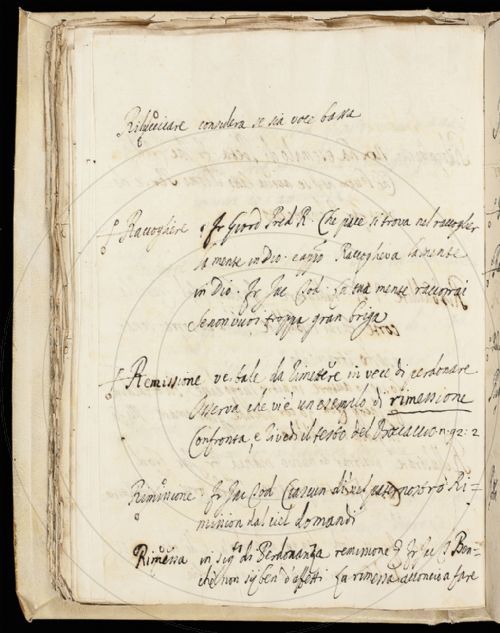 considera se sia voce bassa
Raccogliere Fr Giord Pred R. Che pace si trova nel raccoglier
la mente in Dio. e app.o Raccoglieva la mente
in Dio. Fr Jac Cod: la tua mente raccorrai
Se non vuoi troppa gran briga
Remissione verbale da Rimettere in vece di perdonare
Osserva che vi è un esempio di rimessione
Confronta, e rivedi il testo del Boccaccio n. 92: 2
Fr Jac Cod Ri-
mission dal ciel domandi
Rimessa in sig.o di Perdonanza remissione Fr Jac Ben-
chè non La rimessa a fare